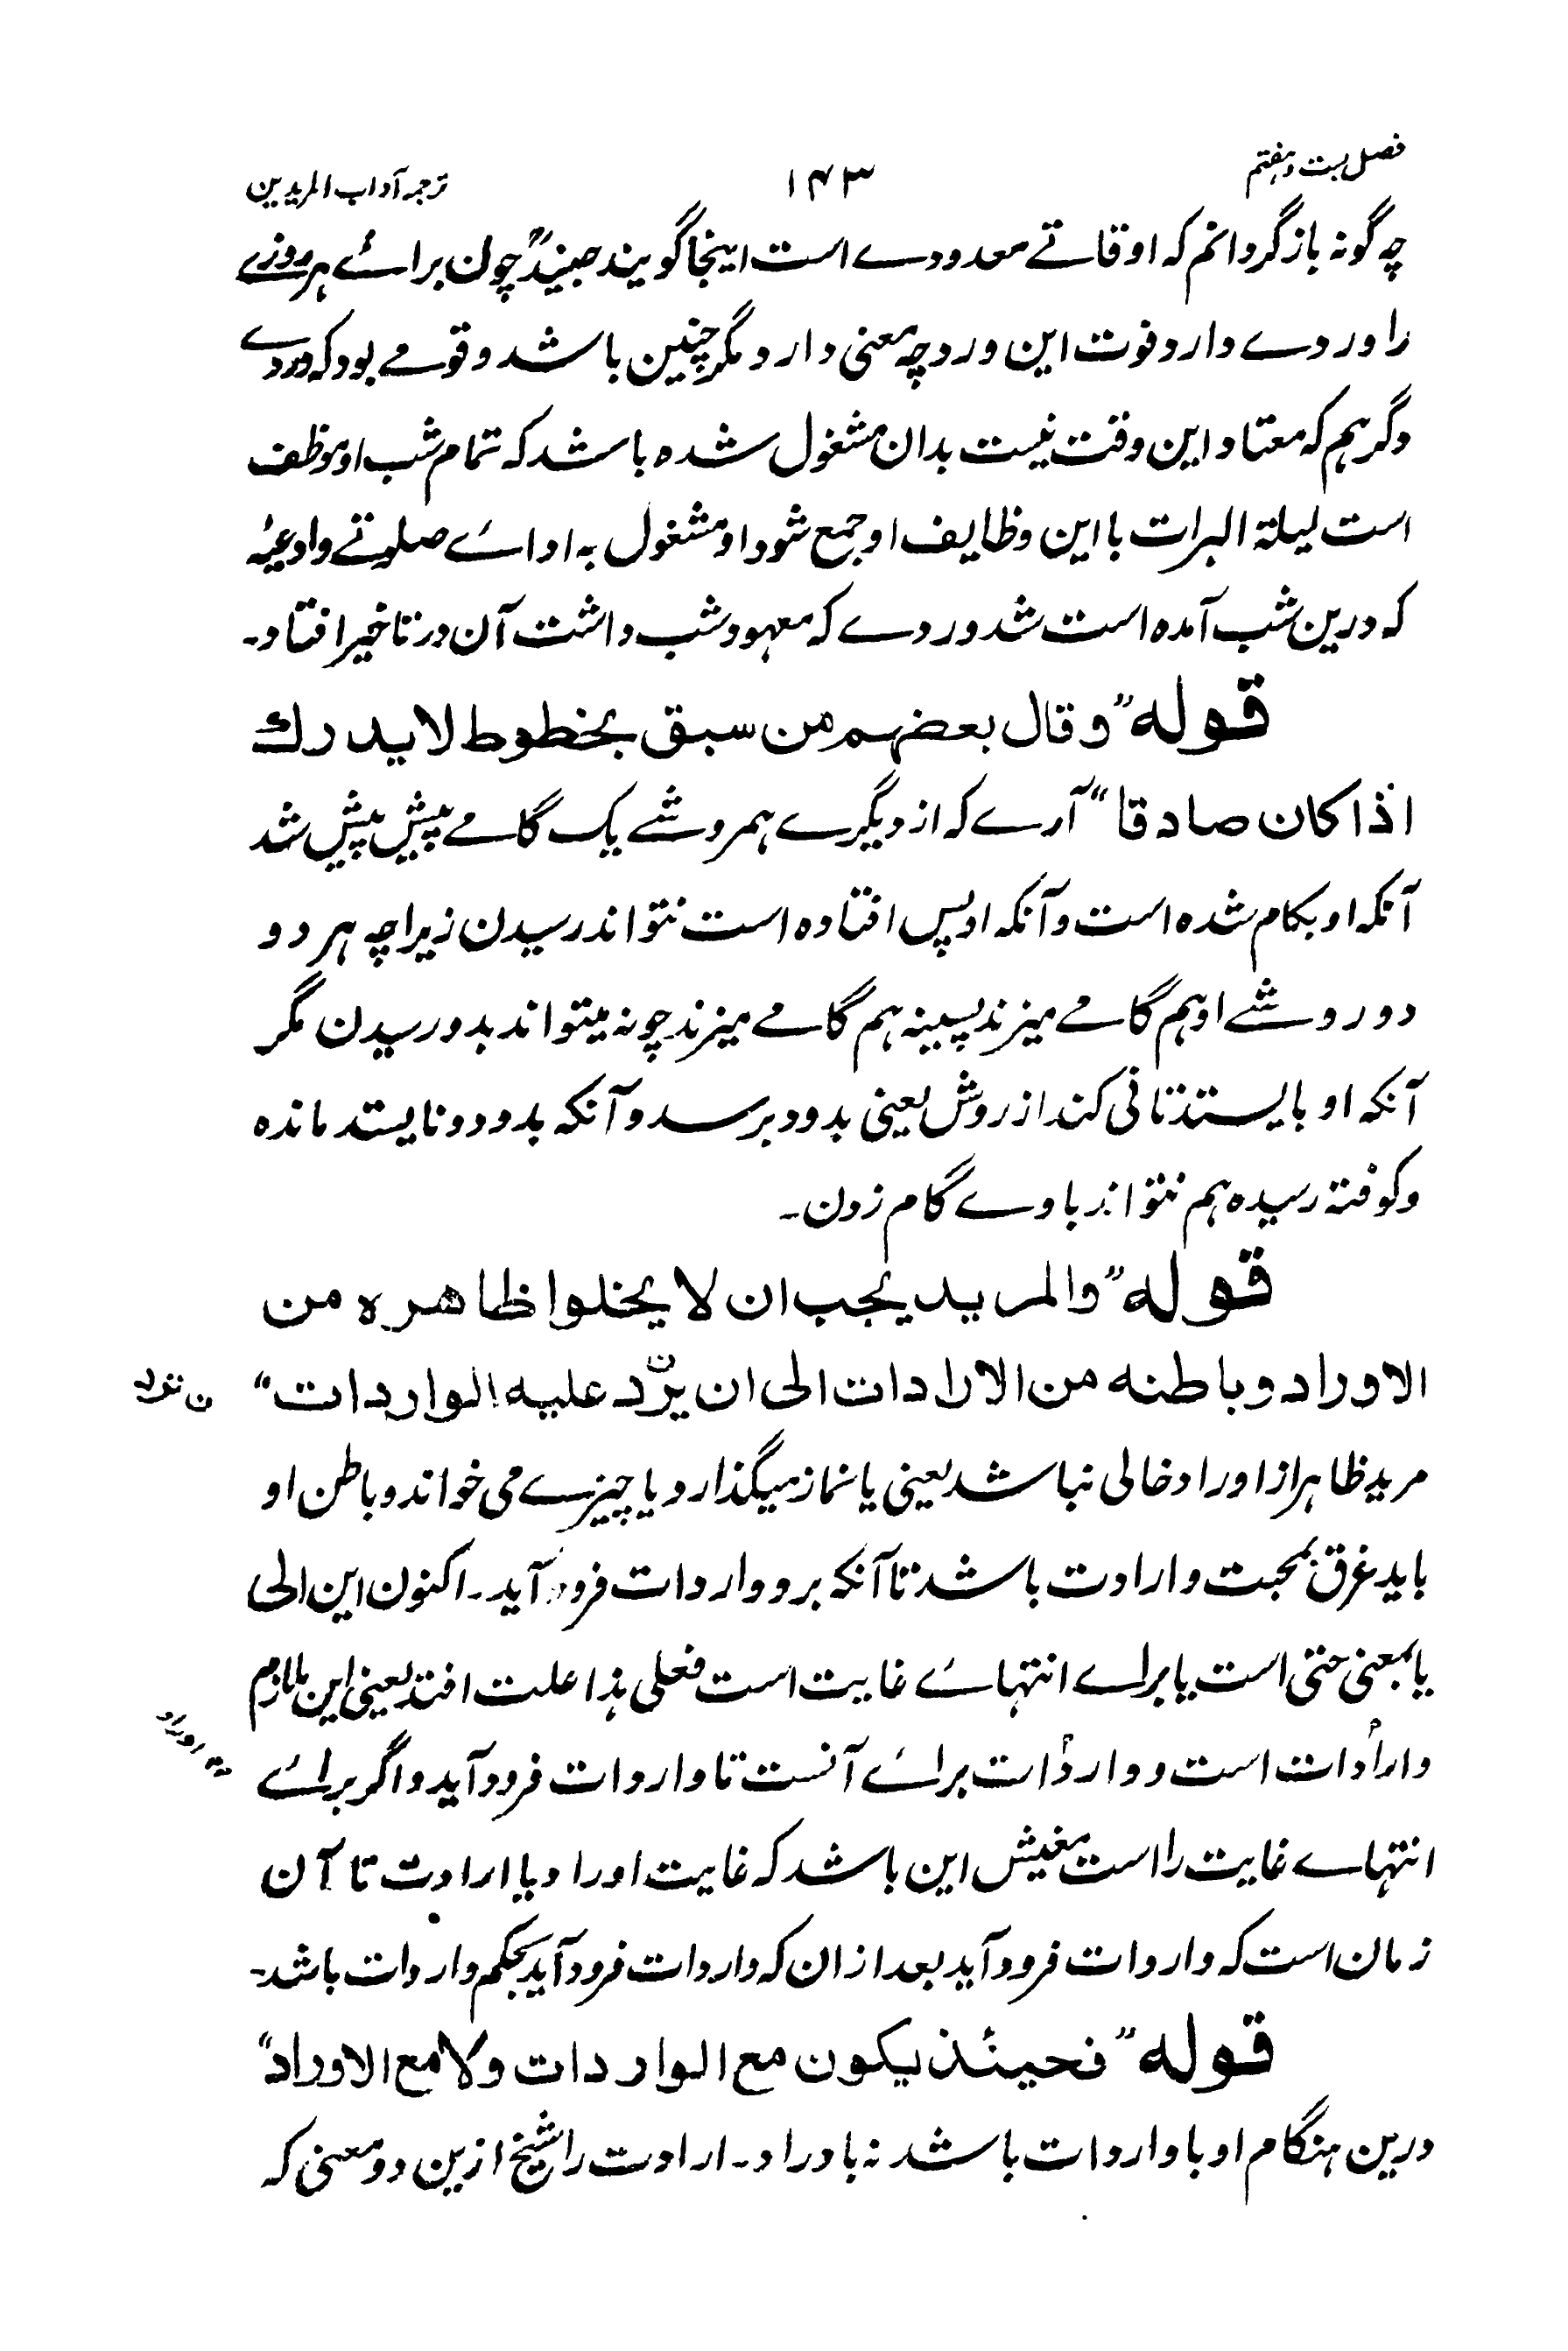 فصل بست و هفتم
۱۴۳
ترجمہ آداب المریدین
چہ گونہ باز گردانم کہ اوقاتے معدودے است اینجا گویند جنیدؒ چون برائے ہر روزے
را وردے دارد فوت این ورد چہ معنی دارد مگر چنین باشد و قومے بود کہ وردے
دگر ہم کہ معتاد این وقت نیست بدان مشغول شدہ باشد کہ تمام شب او موظف
است لیلۃ البرات با این وظایف او جمع شود او مشغول بہ ادائے صلوتے وادعیۂ
کہ درین شب آمدہ است شد وردے کہ معہود شب داشت آن در تاخیر افتاد۔
قوله ”وقال بعضهم من سبق بخطوط لا يدرك
اذا كان صادقا“ آرے کہ از دیگرے ہمروشے یک گامے پیش پیش شد
آنکہ او بکام شدہ است و آنکہ او پس افتادہ است نتواند رسیدن زیراچہ ہر دو
دو روشے او ہم گامے میزند پسینہ ہم گامے میزند چونہ میتواند بدو رسیدن مگر
آنکہ او بایستد تانی کند از روش یعنی بدود برسد و آنکہ بدود و نایستد ماندہ
و کوفتہ رسیدہ ہم نتواند با وے گام زدن۔
قوله ”والمريد يجب ان لا يخلوا ظاهره من
الاوراد وباطنه من الارادات الى ان يرّد عليه الواردات“
ن ترد
مرید ظاہر از اوراد خالی نباشد یعنی یا نماز میگذارد یا چیزے می خواند و باطن او
باید غرق بمحبت و ارادت باشد تا آنکہ برو واردات فرود آید۔ اکنون این الی
یا بمعنی حتی است یا براے انتہائے غایت است فعلی ہذا علت افتد یعنی این ملازم
وارادات است و واردات برائے آنست تا واردات فرود آید و اگر برائے
انتہاے غایت راست معنیش این باشد کہ غایت اوراد با ارادت تا آن
زمان است کہ واردات فرود آید بعد ازان کہ واردات فرود آید بحکم واردات باشد۔
قوله ”فحينئذ يكون مع الواردات ولا مع الاوراد“
درین ہنگام او با واردات باشد نہ با وراد۔ ارادت را شیخ ازین دو معنی کہ